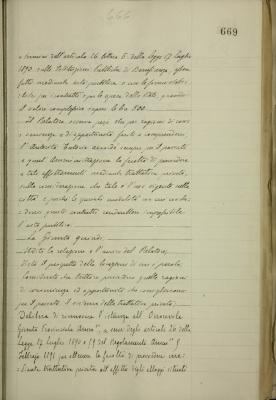 669
a termini dell'articolo 26 lettera b. della legge 17 luglio
1890, sulle Istituzioni Pubbliche di Beneficenza,
fatti mediante asta pubblica e con le forme stabi-
lite per i contratti e per le opere dello Stato, quando
il valore complessivo superi le lire 500.
Il Relatore osserva però che per ragioni di con-
venienza e di opportunità facili a comprendere,
l'Autorità Tutoria accordò sempre pel passato
a quest'Amministrazione la facoltà di procedere
a tali affittamenti mediante trattativa privata,
sulla considerazione che tale è l'uso vigente nella
città e perchè le speciali modalità con cui
devono questi contratti rendere impossibile
l'asta pubblica.
La Giunta quindi:
Udita la relazione e l'avviso del Relatore,
Visto il prospetto delle locazioni di cui è parola
Considerato che tuttora persistono quelle ragioni
di convenienza ed opportunità che consigliarono
pel passato il sistema della trattativa privata;
Delibera di rinnovare l'istanza all'Onorevole
Giunta Provinciale Amm.va a sensi degli articoli 26 della
Legge 17 luglio 1890 e 59 del Regolamento Amm.vo 5
Febbraio 1891 per ottenere la facoltà di procedere me-
diante trattativa privata all'affitto degli alloggi situati